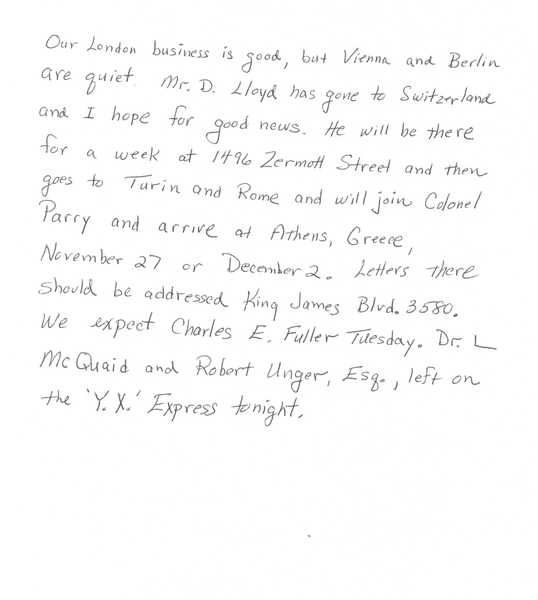 Our London business is good, but Vienna and Berlin
are quiet. Mr. D. Lloyd has gone to Switzerland
and I hope for good news. He will be there
for a week at 1496 Zermott Street and then
goes to Turin and Rome and will join Colonel
Parry and arrive at Athens, Greece,
November 27 or December 2. Letters there
should be addressed King James Blvd. 3580.
We expect Charles E. Fuller Tuesday. Dr. L
McQuaid and Robert Unger, Esq., left on
the 'Y.X.' Express tonight.